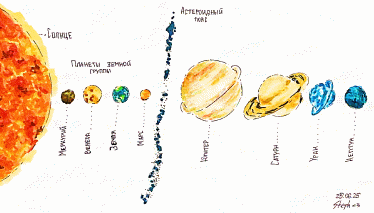 Солнце
Астероидный
пояс
Планеты земной
группы
Меркурий
Венера
Земля
Марс
Юпитер
Сатурн
Уран
Нептун
25.02.25